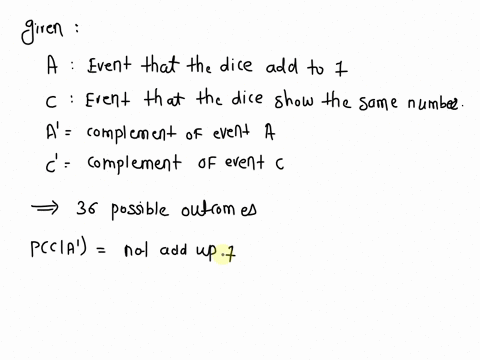 given :
A : Event that the dice add to 7
C : Event that the dice show the same number.
A' = complement of event A
C' = complement of event C
⟹ 36 possible outcomes
P(C|A') = not add up 7